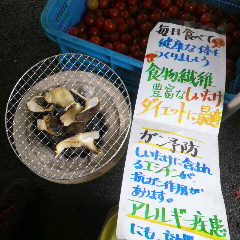 毎日食べて
健康な体を
つくりましょう
食物繊維
豊富なしいたけ
ダイエットに最適
ガン予防
しいたけに含まれ
るエリタデニンが
抗ガン作用が
あります。
アレルギー疾患
にも、